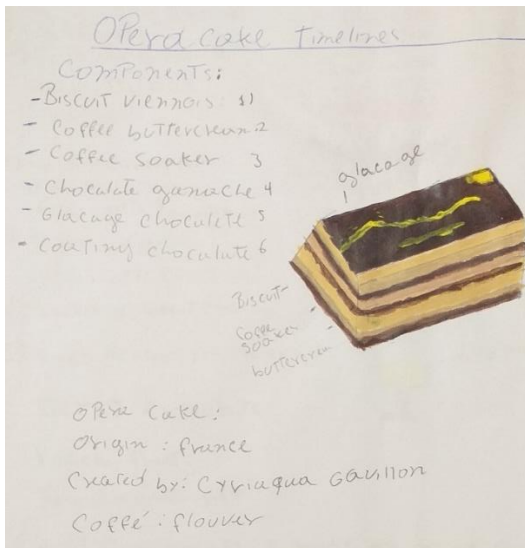 Opera cake Timelines
Components:
- Biscuit viennois: 1)
- Coffee buttercream: 2
- Coffee soaker 3
- Chocolate ganache 4
- Glacage choculete 5
- Coating choculate 6
glacage
Biscuit-
Coffee
soaker
buttercream
Opera Cake:
Origin: france
Created by: Cyriaqua Gavillon
Coffé: flouver